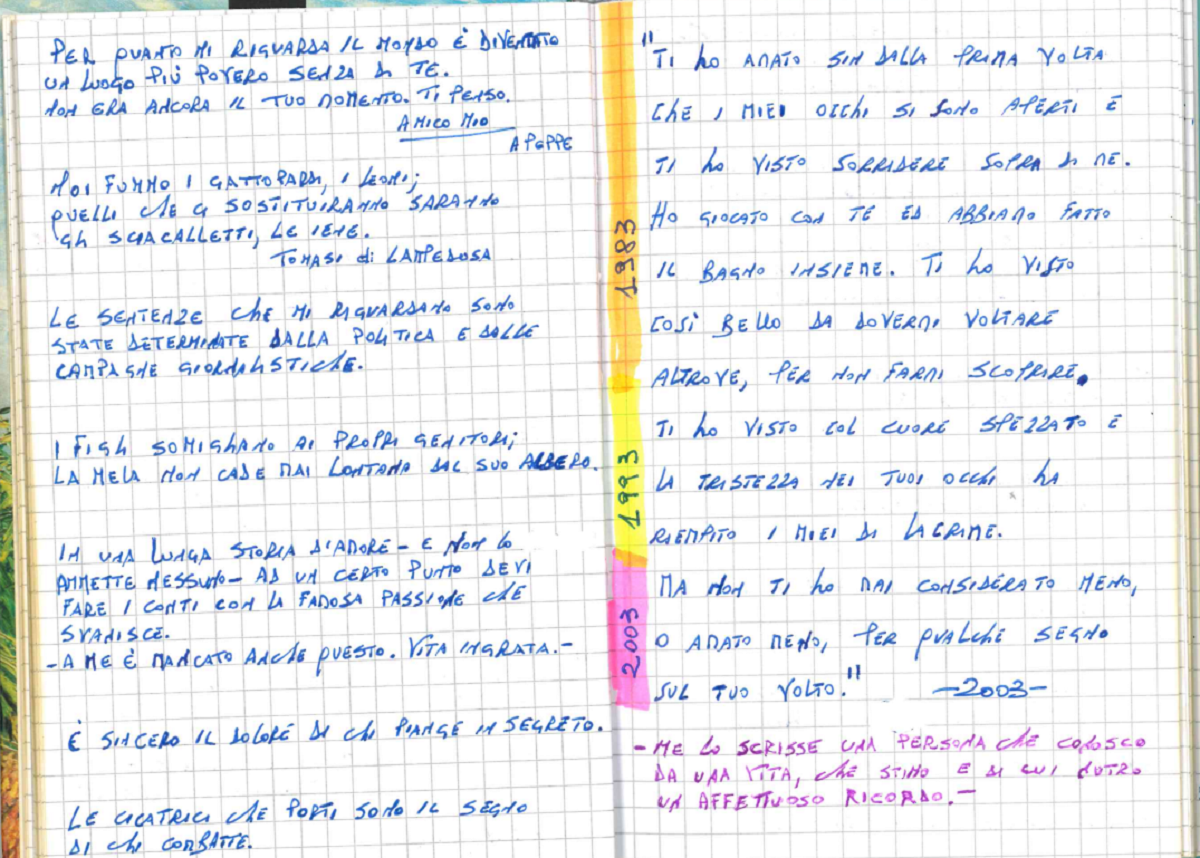 PER QUANTO MI RIGUARDA IL MONDO È DIVENTATO
UN LUOGO PIÙ POVERO SENZA DI TE.
NON ERA ANCORA IL TUO MOMENTO. TI PENSO.
AMICO MIO
A PEPPE
NOI FUMMO I GATTOPARDI, I LEONI;
QUELLI CHE CI SOSTITUIRANNO SARANNO
GLI SCIACALLETTI, LE IENE.
TOMASI di LAMPEDUSA
LE SENTENZE CHE MI RIGUARDANO SONO
STATE DETERMINATE DALLA POLITICA E DALLE
CAMPAGNE GIORNALISTICHE.
I FIGLI SOMIGLIANO AI PROPRI GENITORI;
LA MELA NON CADE MAI LONTANA DAL SUO ALBERO.
IN UNA LUNGA STORIA D'AMORE - E NON LO
AMMETTE NESSUNO - AD UN CERTO PUNTO DEVI
FARE I CONTI CON LA FAMOSA PASSIONE CHE
SVANISCE.
- A ME È MANCATO ANCHE QUESTO. VITA INGRATA. -
È SINCERO IL DOLORE DI CHI PIANGE IN SEGRETO.
LE CICATRICI CHE PORTI SONO IL SEGNO
DI CHI COMBATTE.
1983
1993
2003
"TI HO AMATO SIN DALLA PRIMA VOLTA
CHE I MIEI OCCHI SI SONO APERTI E
TI HO VISTO SORRIDERE SOPRA DI ME.
HO GIOCATO CON TE ED ABBIAMO FATTO
IL BAGNO INSIEME. TI HO VISTO
COSÌ BELLO DA DOVERMI VOLTARE
ALTROVE, PER NON FARMI SCOPRIRE.
TI HO VISTO COL CUORE SPEZZATO E
LA TRISTEZZA NEI TUOI OCCHI HA
RIEMPITO I MIEI DI LACRIME.
MA NON TI HO MAI CONSIDERATO MENO,
O AMATO MENO, PER QUALCHE SEGNO
SUL TUO VOLTO." -2003-
- ME LO SCRISSE UNA PERSONA CHE CONOSCO
DA UNA VITA, CHE STIMO E DI CUI NUTRO
UN AFFETTUOSO RICORDO. -